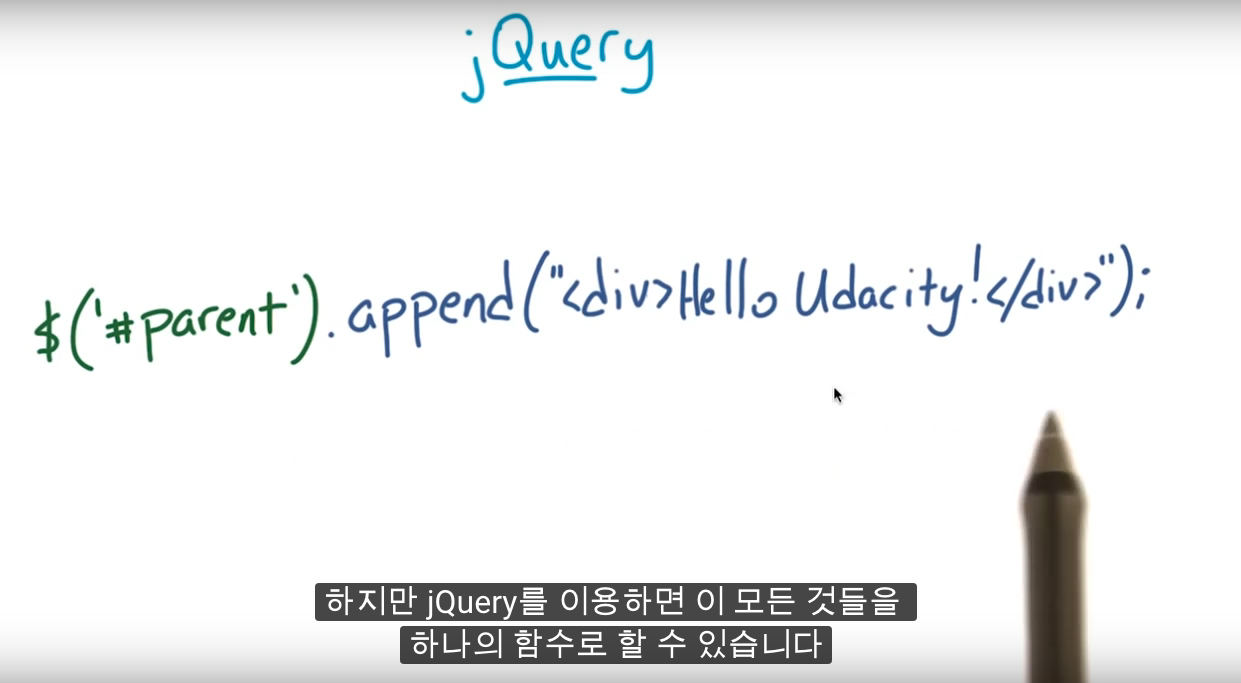 jQuery
$('#parent').append("<div>Hello Udacity!</div>");
하지만 jQuery를 이용하면 이 모든 것들을
하나의 함수로 할 수 있습니다